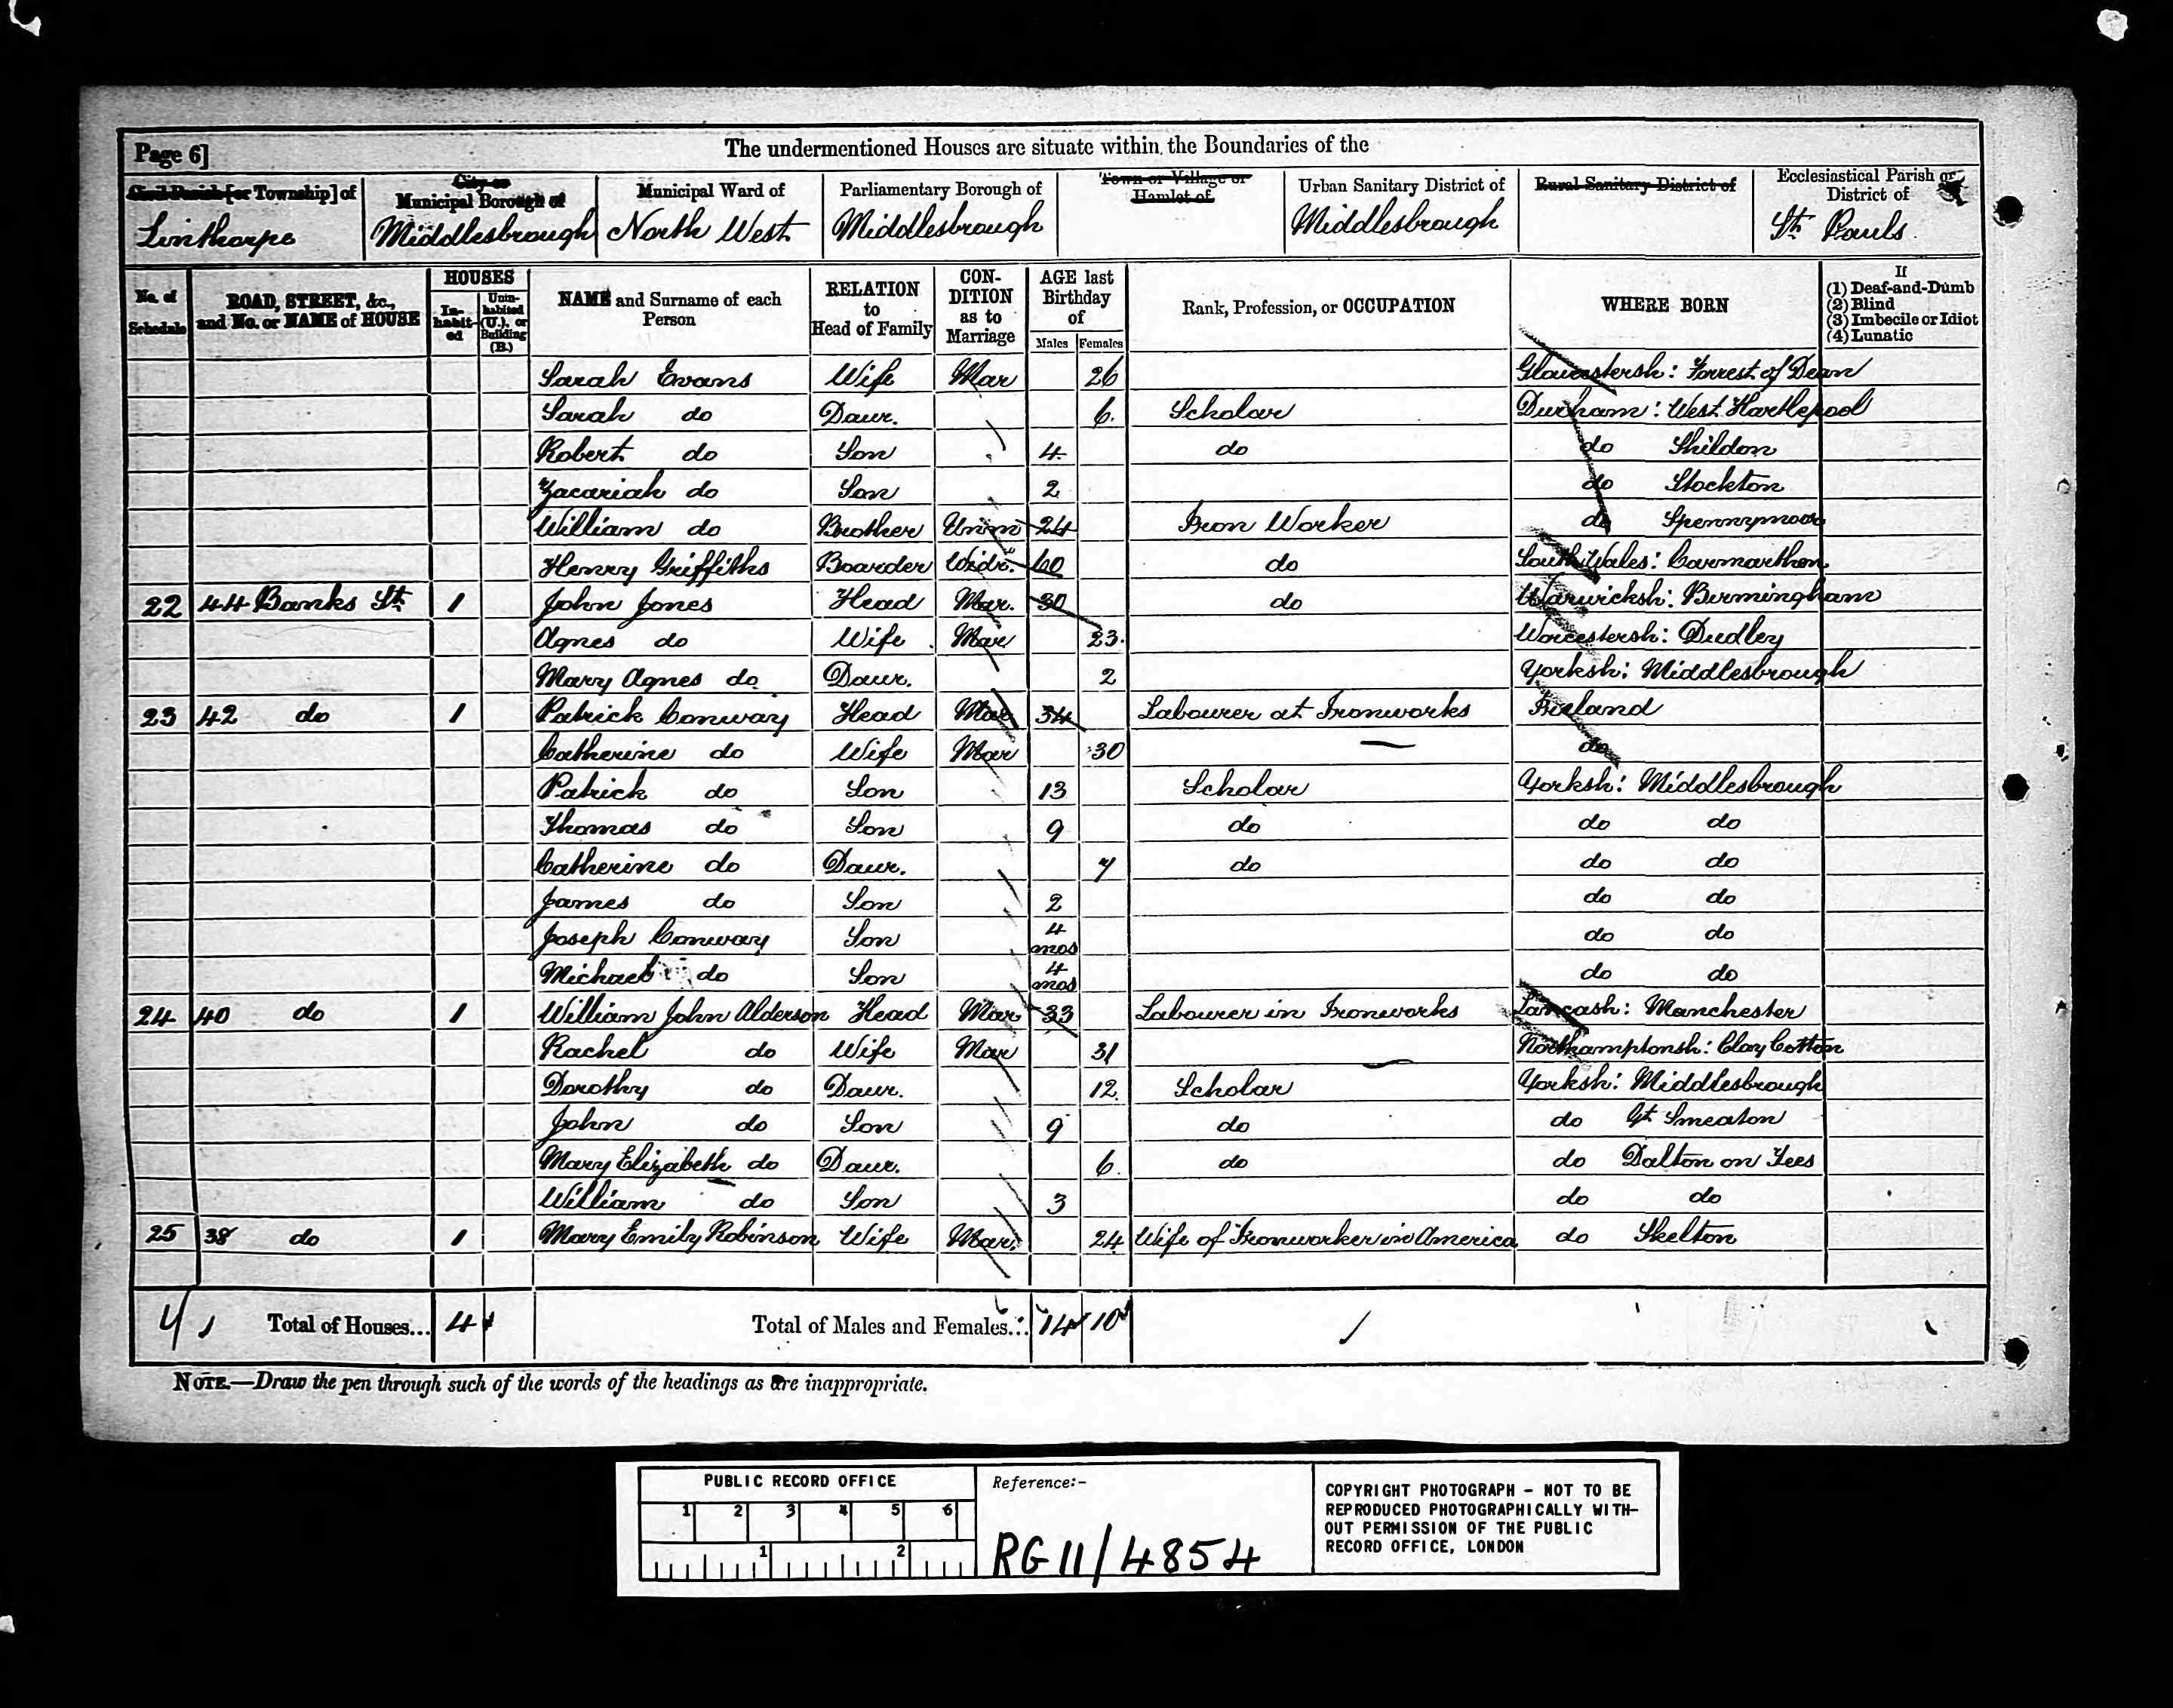 Page 6]
The undermentioned Houses are situate within the Boundaries of the
Civil Parish [or Township] of
City or Municipal Borough of
Municipal Ward of
Parliamentary Borough of
Town or Village or Hamlet of
Urban Sanitary District of
Rural Sanitary District of
Ecclesiastical Parish or District of
Linthorpe Middlesbrough North West Middlesbrough Middlesbrough St. Pauls
No. of Schedule
ROAD, STREET, &c., and No. or NAME of HOUSE
HOUSES
In-habit-ed
Unin-habited (U.), or Building (B.)
NAME and Surname of each Person
RELATION to Head of Family
CON-DITION as to Marriage
AGE last Birthday of
Males Females
Rank, Profession, or OCCUPATION
WHERE BORN
If
(1) Deaf-and-Dumb
(2) Blind
(3) Imbecile or Idiot
(4) Lunatic
Sarah Evans Wife Mar 26 Gloucestersh: Forrest of Dean
Sarah do Daur. 6. Scholar Durham: West Hartlepool
Robert do Son 4 do do Shildon
Zacariah do Son 2 do Stockton
William do Brother Unm 24 Iron Worker do Spennymoor
Henry Griffiths Boarder Widr. 60 do South Wales: Carmarthen
22 44 Banks St. 1 John Jones Head Mar. 30 do Warwicksh: Birmingham
Agnes do Wife Mar 23. Worcestersh: Dudley
Mary Agnes do Daur. 2 Yorksh: Middlesbrough
23 42 do 1 Patrick Conway Head Mar 34 Labourer at Ironworks Ireland
Catherine do Wife Mar 30 — do
Patrick do Son 13 Scholar Yorksh: Middlesbrough
Thomas do Son 9 do do do
Catherine do Daur. 7 do do do
James do Son 2 do do
Joseph Conway Son 4 mos do do
Michael do Son 4 mos do do
24 40 do 1 William John Alderson Head Mar 33 Labourer in Ironworks Lancash: Manchester
Rachel do Wife Mar 31 — Northamptonsh: Clay Cotton
Dorothy do Daur. 12. Scholar Yorksh: Middlesbrough
John do Son 9 do do Gt. Smeaton
Mary Elizabeth do Daur. 6 do do Dalton on Tees
William do Son 3 do do
25 38 do 1 Mary Emily Robinson Wife Mar. 24 Wife of Ironworker in America do Skelton
4 Total of Houses... 4 Total of Males and Females... 14 10
NOTE.—Draw the pen through such of the words of the headings as are inappropriate.
PUBLIC RECORD OFFICE
1 2 3 4 5 6
1 2
Reference:-
RG 11/4854
COPYRIGHT PHOTOGRAPH - NOT TO BE
REPRODUCED PHOTOGRAPHICALLY WITH-
OUT PERMISSION OF THE PUBLIC
RECORD OFFICE, LONDON